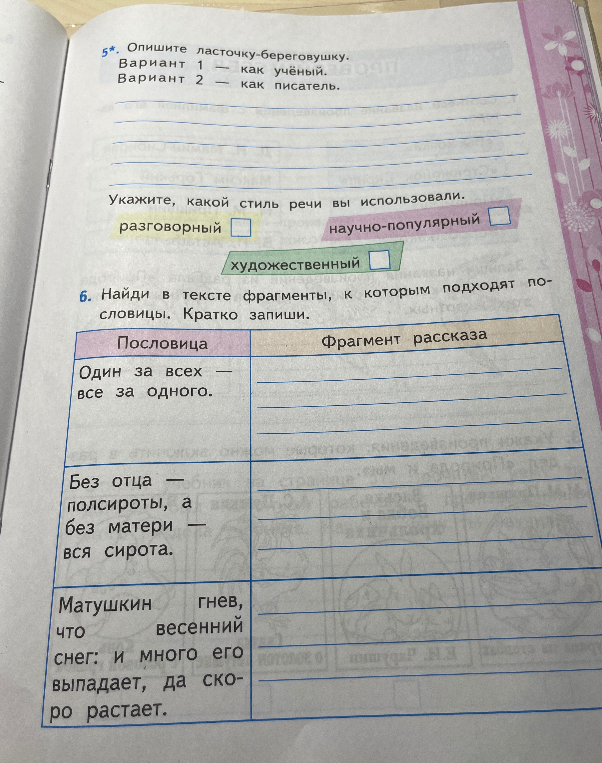 5*. Опишите ласточку-береговушку.
Вариант 1 — как учёный.
Вариант 2 — как писатель.
Укажите, какой стиль речи вы использовали.
разговорный
научно-популярный
художественный
6. Найди в тексте фрагменты, к которым подходят по-
словицы. Кратко запиши.
Пословица
Фрагмент рассказа
Один за всех —
все за одного.
Без отца —
полсироты, а
без матери —
вся сирота.
Матушкин гнев,
что весенний
снег: и много его
выпадает, да ско-
ро растает.